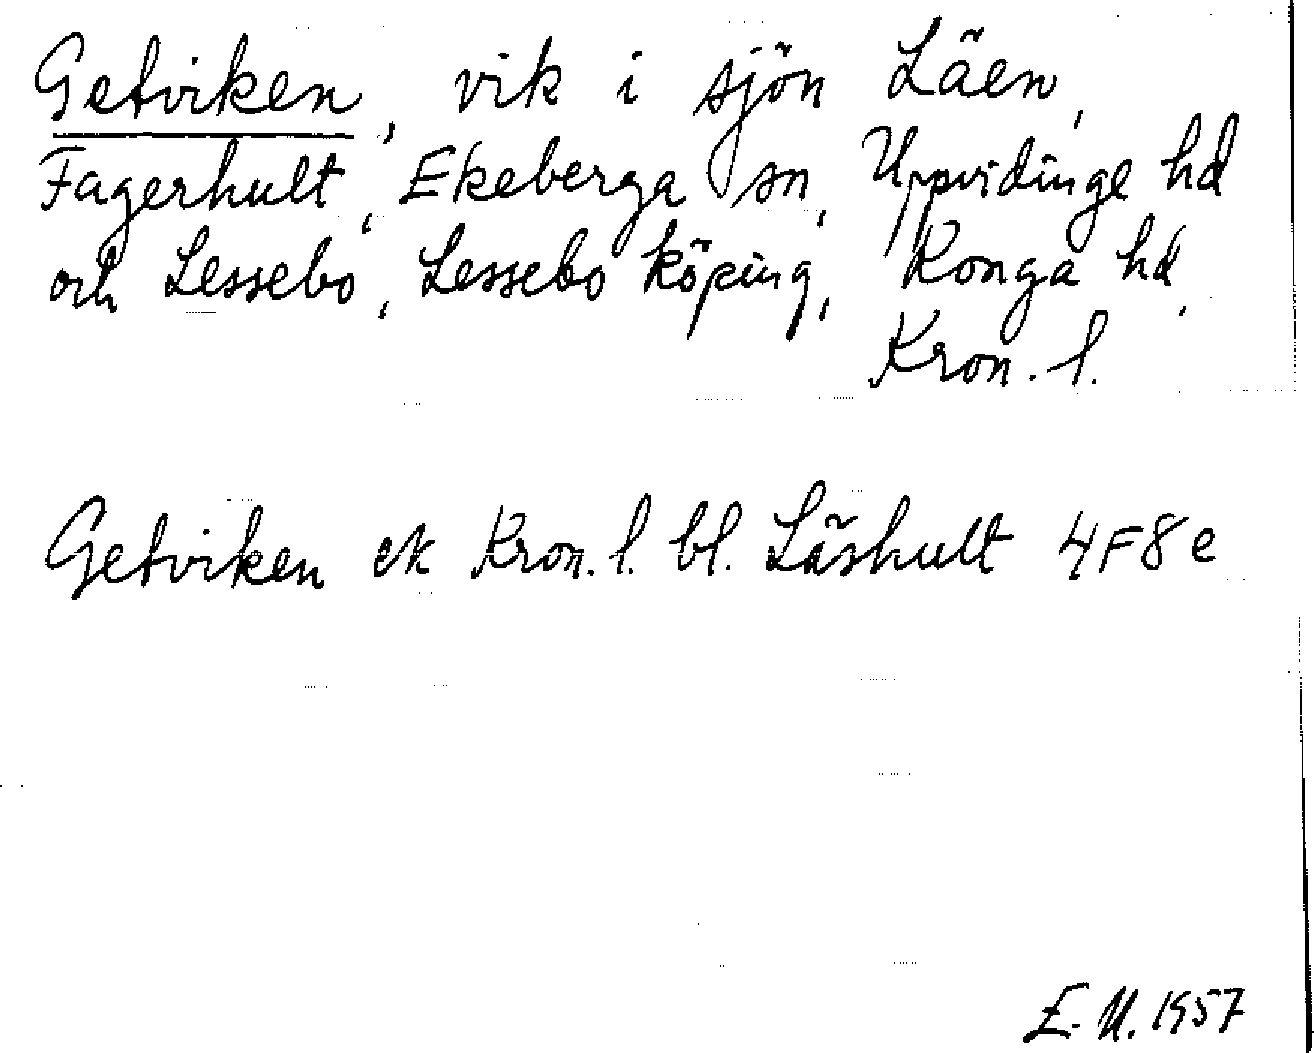 Getviken, vik i sjön Läen,
Fagerhult, Ekeberga sn, Uppvidinge hd
och Lessebo, Lessebo köping, Konga hd,
Kron. l.
Getviken ek Kron. l. bl. Läshult 4F8e
E. U. 1957